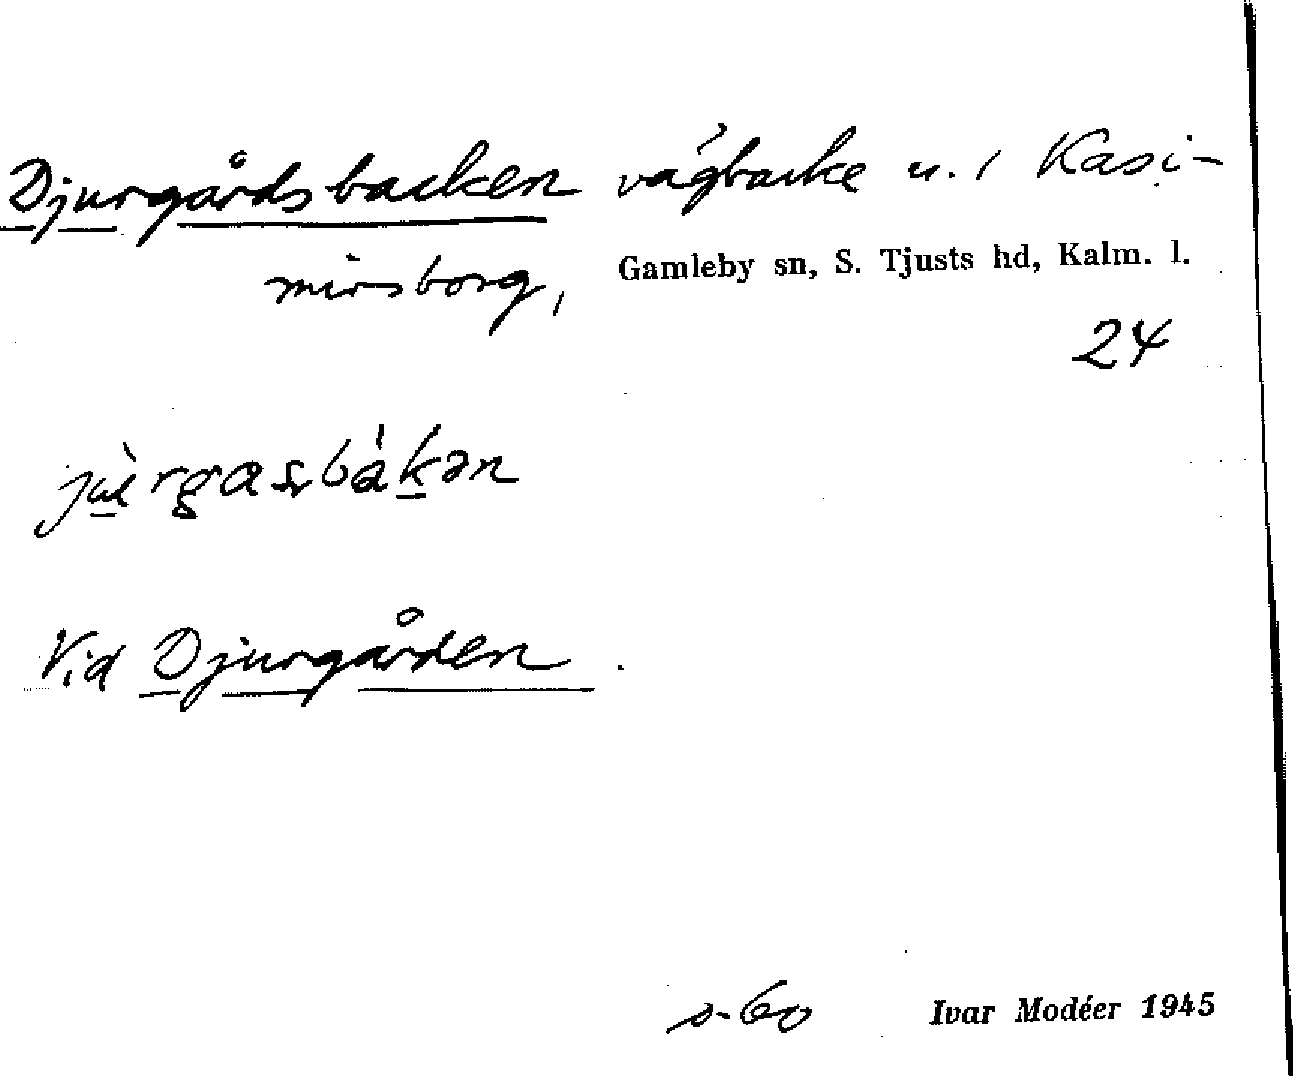 Djurgårdsbacken vägbacke u. / Kasi-
mirsborg, Gamleby sn, S. Tjusts hd, Kalm. l.
24
Vid Djurgården.
s. 60 Ivar Modéer 1945